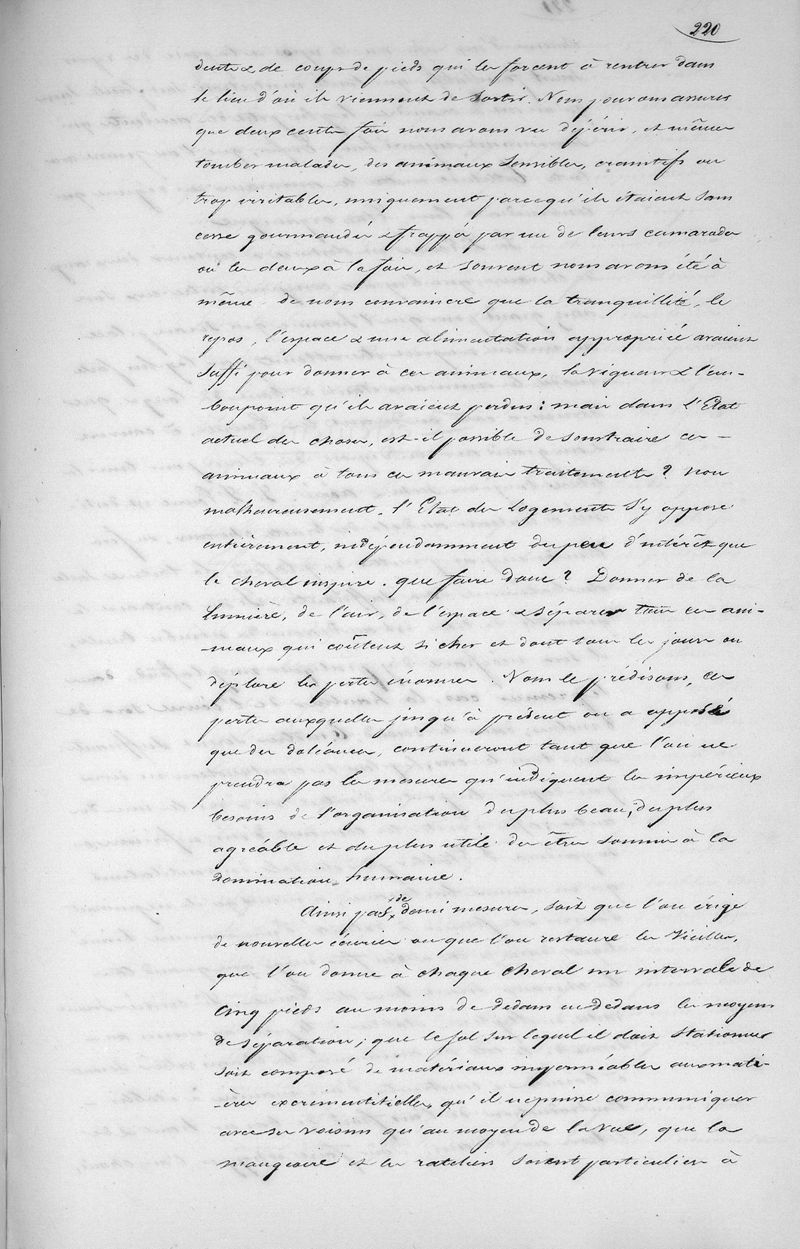 220
dents & de coups de pieds qui les forcent à rentrer dans
le lieu d'où ils viennent de sortir. Nous pouvons assurer
que deux cents fois nous avons vu dépérir, et même
tomber malades, des animaux sensibles, craintifs ou
trop irritables, uniquement parcequ'ils étaient sans
cesse gourmandés & frappés par un de leurs camarades
ou les deux à la fois, et souvent nous avons été à
même de nous convaincre que la tranquillité, le
repos, l'espace & une alimentation appropriée avaient
suffi pour donner à ces animaux, la vigueur & l'em-
bonpoint qu'ils avaient perdus : mais dans l'Etat
actuel des choses, est-il possible de soustraire ces
animaux à tous ces mauvais traitements ? non
malheureusement, l'Etat des Logements s'y oppose
entièrement, indépendamment du peu d'intérêt que
le cheval inspire. que faire donc ? Donner de la
lumière, de l'air, de l'espace & séparer tous ces ani-
-maux qui coûtent si cher et dont tous les jours on
déplore les pertes énormes. Nous le prédisons, ces
pertes auxquelles jusqu'à présent on a opposé
que des doléances, continueront tant que l'on ne
prendra pas les mesures qu'indiquent les impérieux
besoins de l'organisation du plus beau, du plus
agréable et du plus utile des êtres soumis à la
domination humaine.
Ainsi pas de demi mesures, soit que l'on érige
de nouvelles écuries ou que l'on restaure les Vieilles,
que l'on donne à chaque cheval un intervale de
Cinq pieds au moins de dedans en dedans les moyens
de séparation ; que le sol sur lequel il doit stationner
soit composé de matériaux imperméables aux mati-
-ères excrémentitielles, qu'il ne puisse communiquer
avec ses voisins qu'au moyen de la vue, que la
mangeoire et les rateliers soient particuliers à